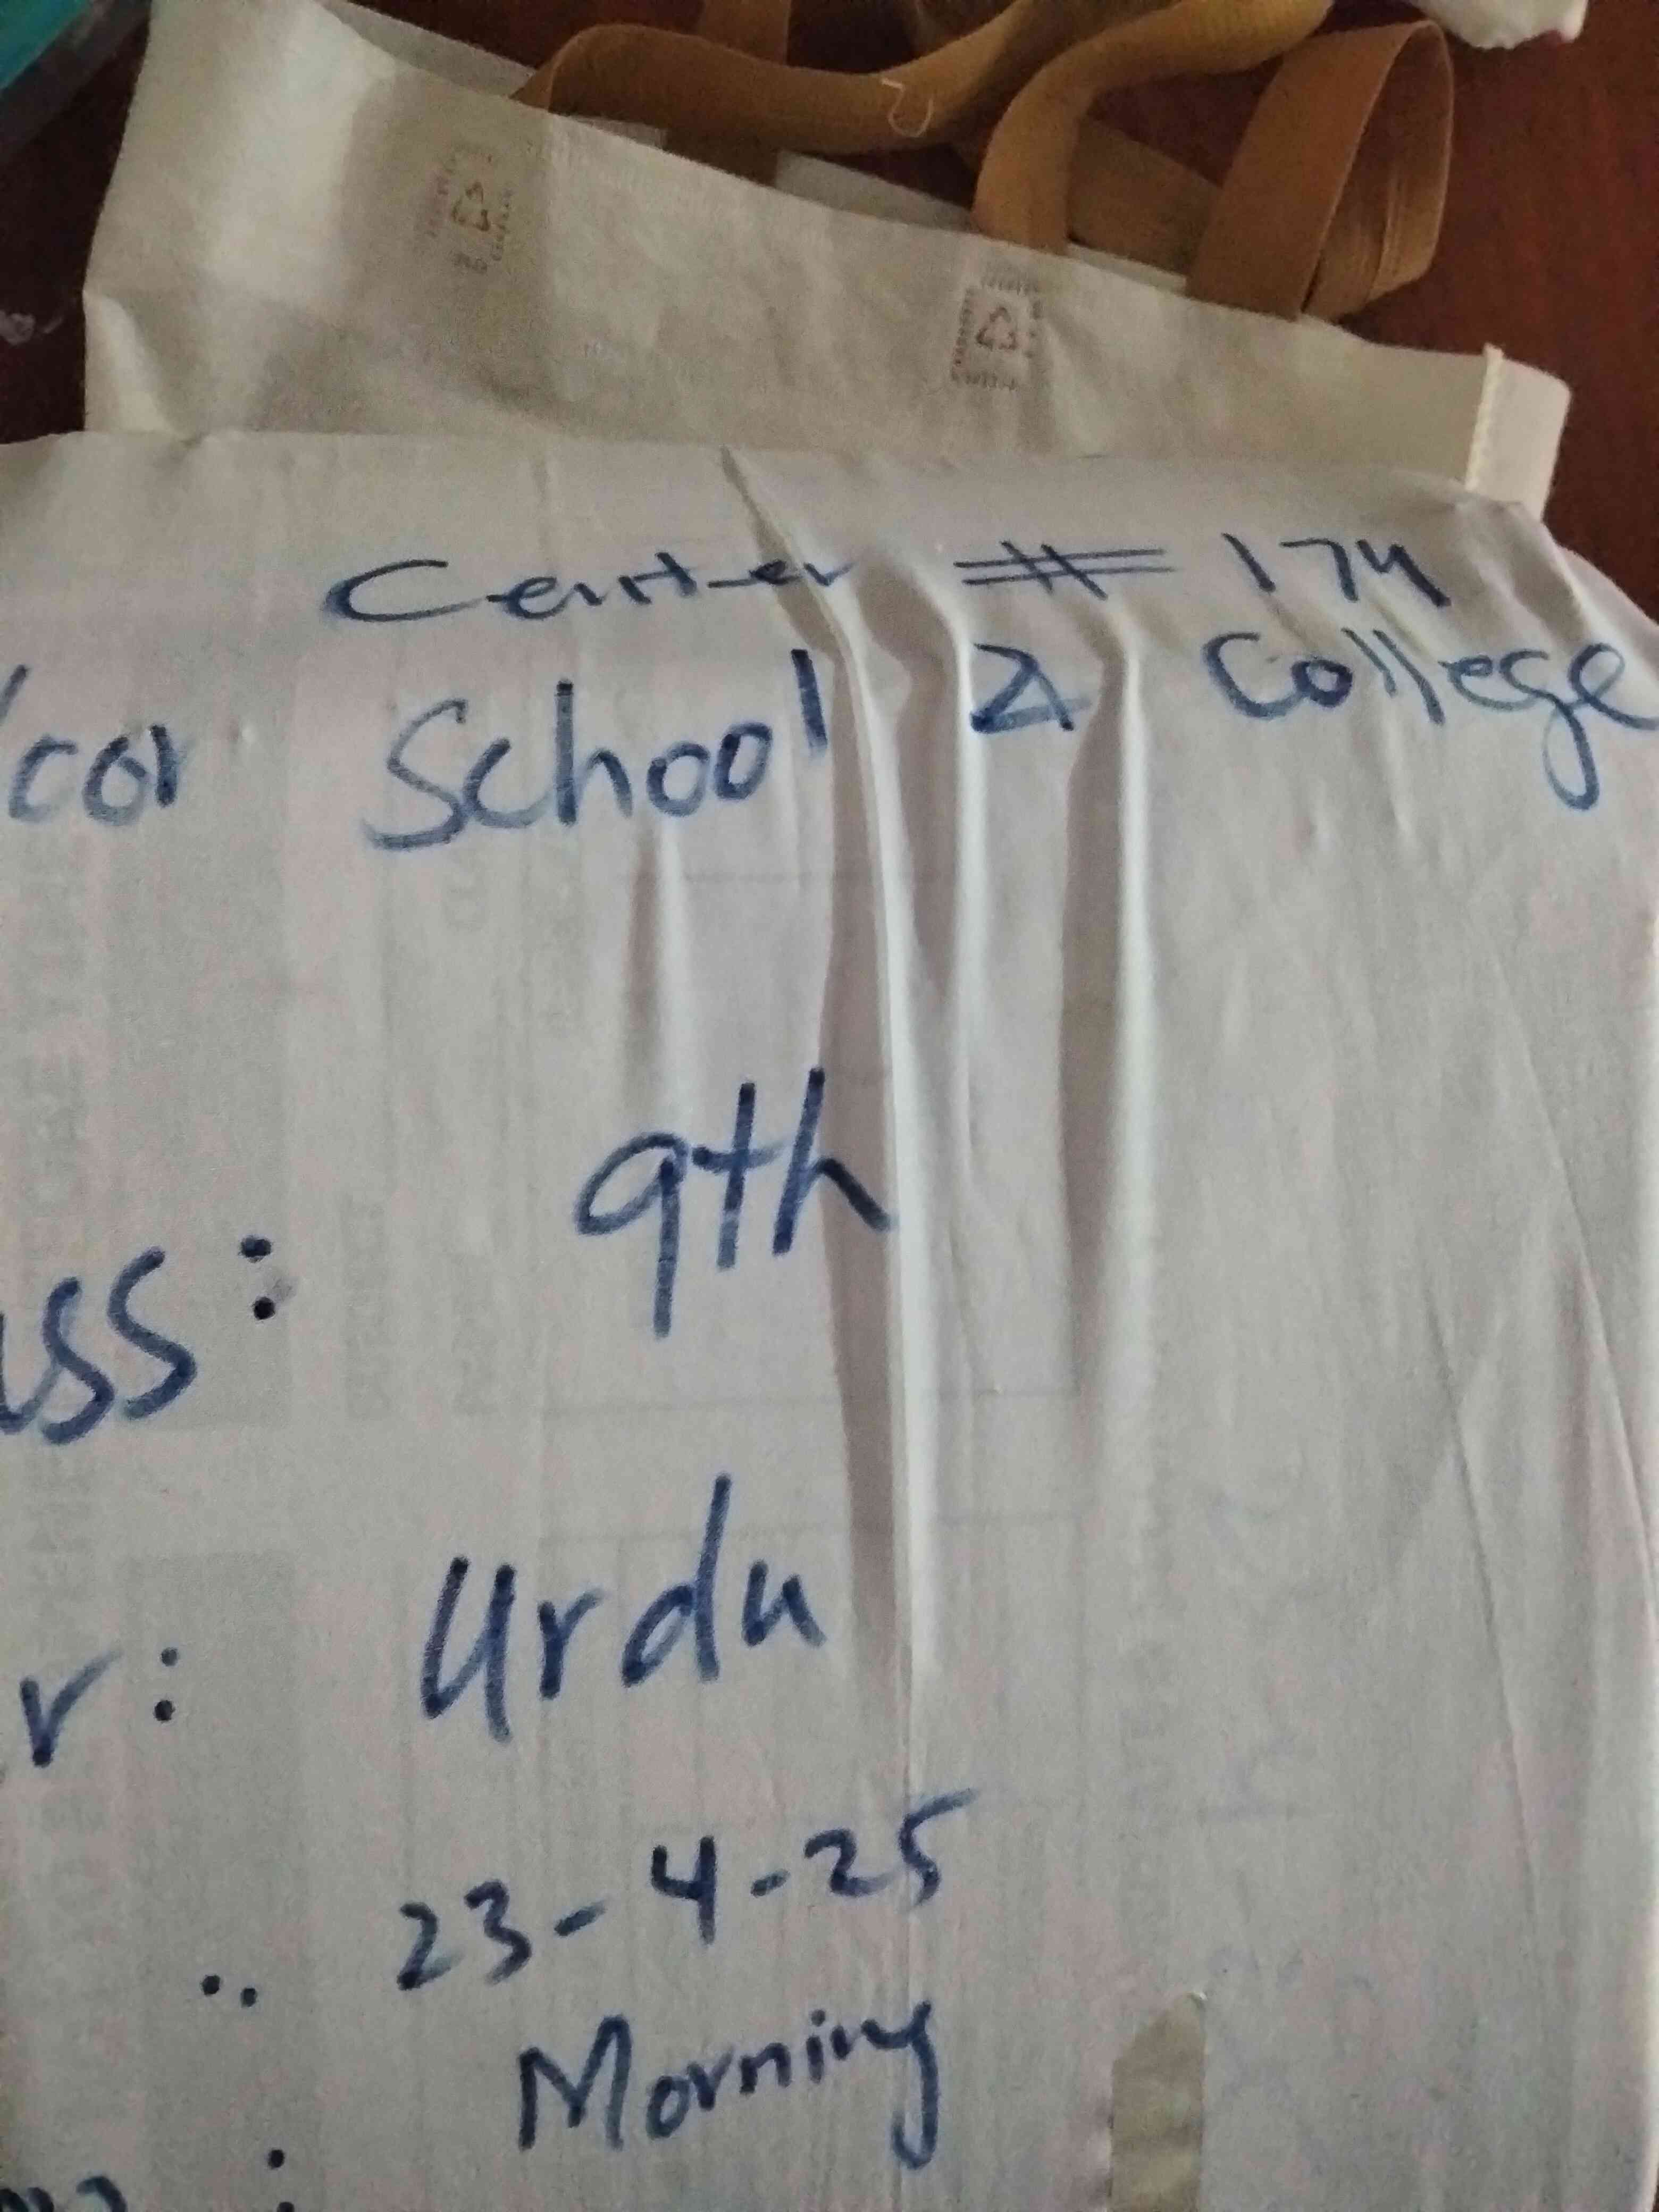 Center # 174
School & College
9th
ss:
Urdu
r:
23-4-25
Morning